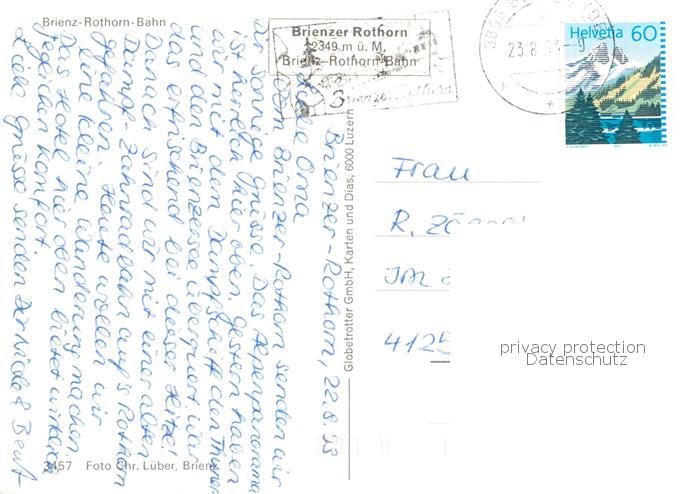 Brienz-Rothorn-Bahn
Brienzer Rothorn
2349 m ü. M.
Brienz-Rothorn-Bahn
Brienzer Rothorn
23.8.
Helvetia 60
Brienzer-Rothorn, 22.8.93
Liebe Oma
Vom Brienzer-Rothorn senden wir
dir sonnige Grüsse. Das Alpenpanorama
ist herrlich hier oben. Gestern haben
wir mit dem Dampfschiff den Thuner
und den Brienzersee überquert. War
das erfrischend bei dieser Hitze!
Danach sind wir mit einer alten
Dampf-Zahnradbahn auf's Rothorn
gefahren. Heute wollen wir
eine kleine Wanderung machen.
Das Hotel hier oben bietet wirklich
jeglichen Komfort.
Liebe Grüsse senden Dir Nicole & Beat
Globetrotter GmbH, Karten und Dias, 6000 Luzern
Frau
R.
4125
privacy protection
Datenschutz
3457 Foto Chr. Lüber, Brienz